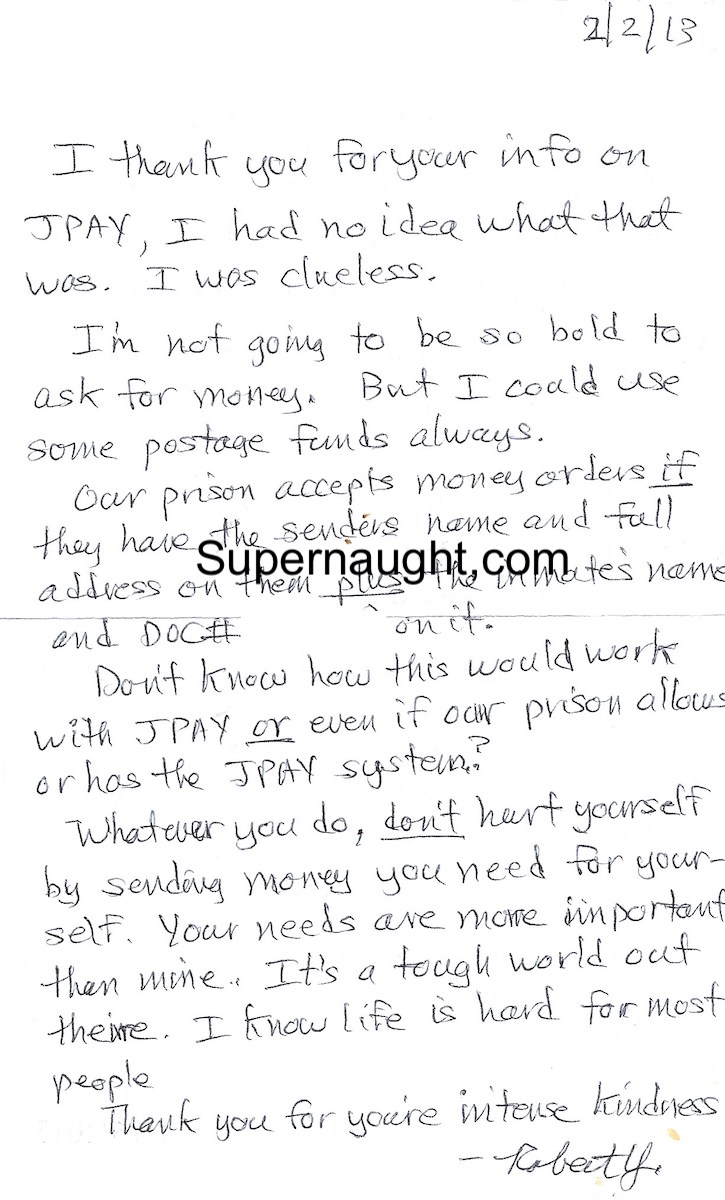 2/2/13
I thank you for your info on
JPAY, I had no idea what that
was. I was clueless.
I'm not going to be so bold to
ask for money. But I could use
some postage funds always.
Our prison accepts money orders if
they have the senders name and full
address on them plus the inmate's name
Supernaught.com
and DOC# on it.
Don't know how this would work
with JPAY or even if our prison allows
or has the JPAY system?
Whatever you do, don't hurt yourself
by sending money you need for your-
self. Your needs are more important
than mine. It's a tough world out
there. I know life is hard for most
people
Thank you for you're intense kindness
- Robert Y.